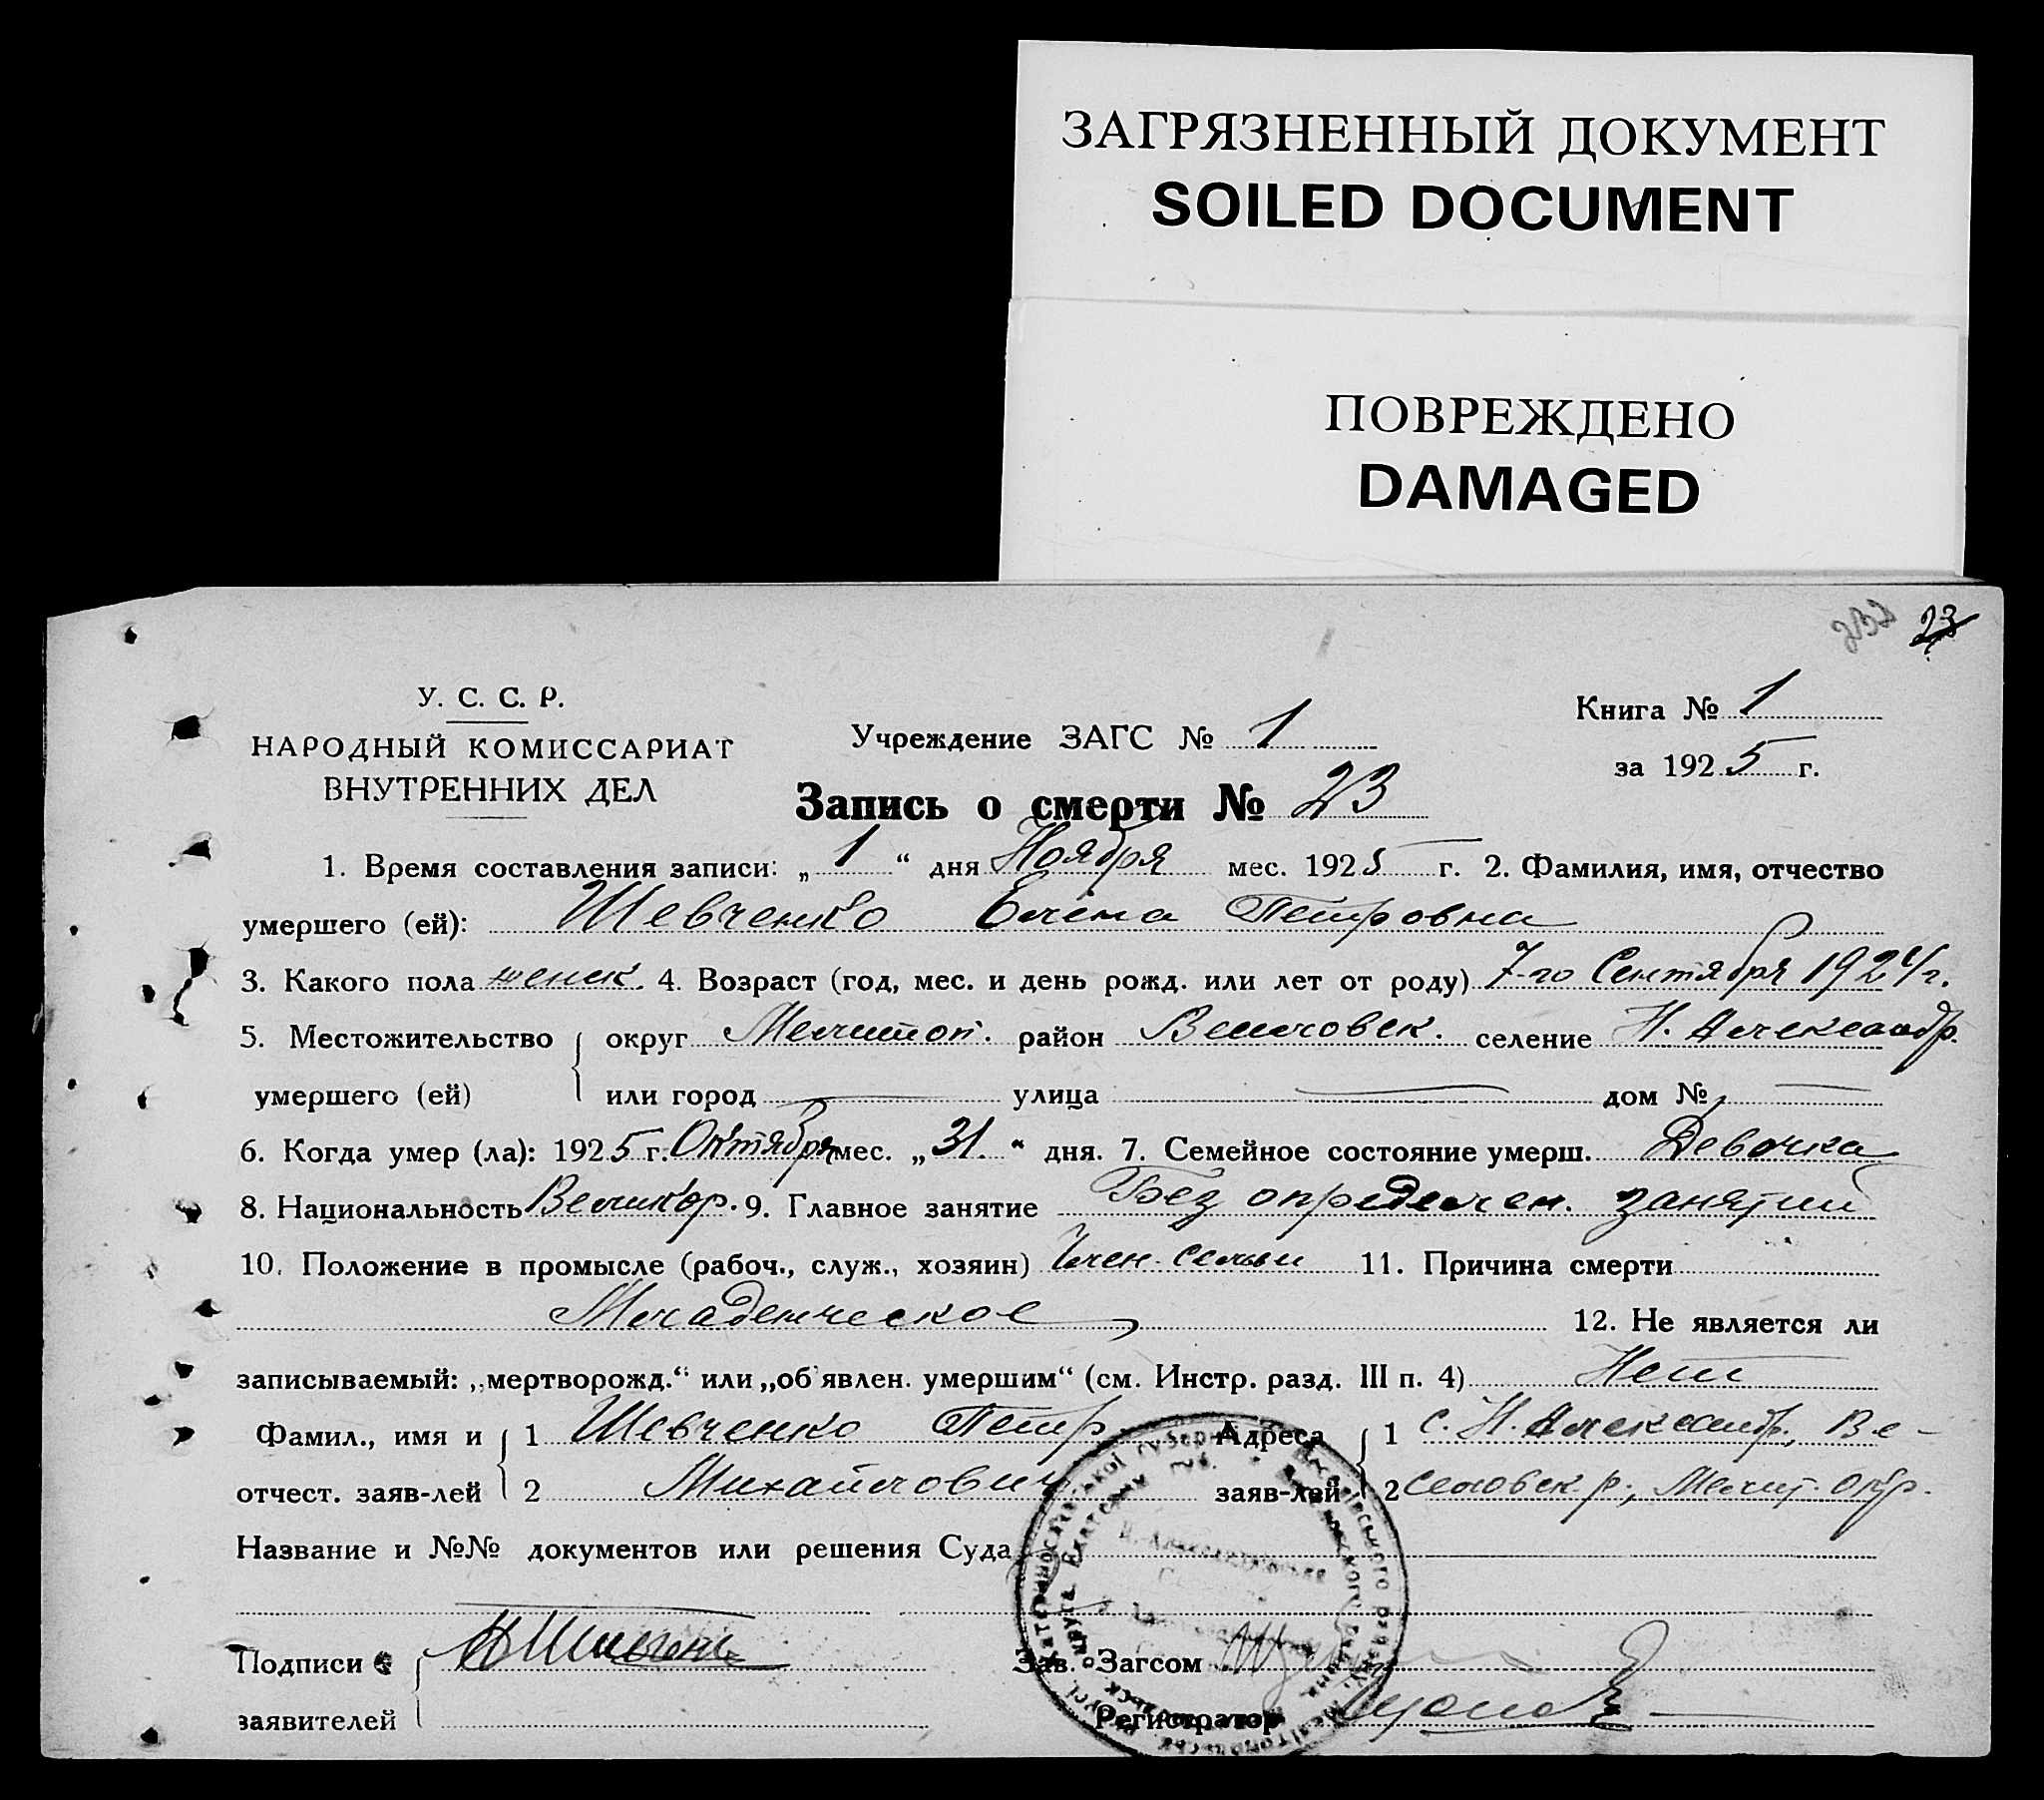 ЗАГРЯЗНЕННЫЙ ДОКУМЕНТ
SOILED DOCUMENT
ПОВРЕЖДЕНО
DAMAGED
232 23
У. С. С. Р.
НАРОДНЫЙ КОМИССАРИАТ
ВНУТРЕННИХ ДЕЛ
Учреждение ЗАГС № 1
Книга № 1
за 1925 г.
Запись о смерти № 23
1. Время составления записи: „1“ дня Ноября мес. 1925 г. 2. Фамилия, имя, отчество
умершего (ей): Шевченко Елена Петровна
3. Какого пола женск. 4. Возраст (год, мес. и день рожд. или лет от роду) 7-го Сентября 1924 г.
5. Местожительство округ Мелитоп. район Веселовск. селение Н. Александр.
умершего (ей) или город — улица — дом № —
6. Когда умер (ла): 1925 г. Октября мес. „31.“ дня. 7. Семейное состояние умерш. Девочка
8. Национальность Великор. 9. Главное занятие Без определен. занятий
10. Положение в промысле (рабоч., служ., хозяин) Член. семьи 11. Причина смерти
Младенческое 12. Не является ли
записываемый: „мертворожд.“ или „об'явлен. умершим“ (см. Инстр. разд. III п. 4) Нет
Фамил., имя и 1 Шевченко Петр Адреса 1 с. Н. Александр., Ве-
отчест. заяв-лей 2 Михайлович заяв-лей 2 селовск р., Мелит. окр.
Название и №№ документов или решения Суда
Подписи Зав. Загсом
заявителей Регистратор